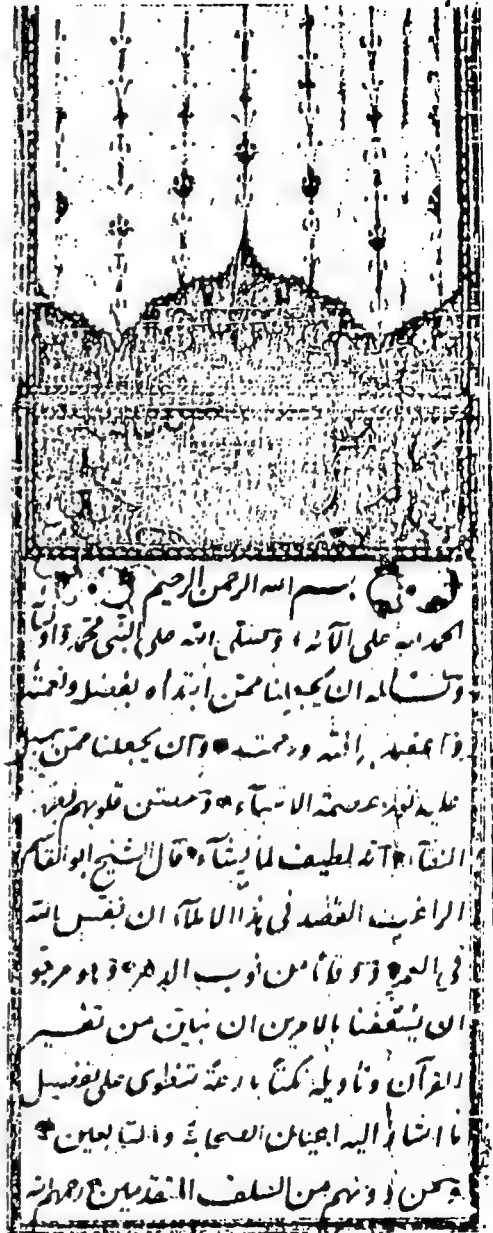 بسم الله الرحمن الرحيم
الحمد لله على آلائه وصلى الله على النبي محمد وأوليائه
ونسأله أن يجعلنا ممن ابتدأه بفضله ونعمته
برأفته ورحمته وأن يجعلنا ممن
عليه
إنه لطيف لما يشاء قال الشيخ أبو القاسم
الراغب القصد في هذا الإملاء إن نفس الله
في العمر من نوب الدهر وهو مرجو
أن يسعفنا بالأمرين أن نبين من تفسير
القرآن وتأويله نكتا بارعة تنطوي على تفصيل
ما أشار إليه أعيان الصحابة والتابعين
ومن دونهم من السلف المتقدمين رحمهم الله